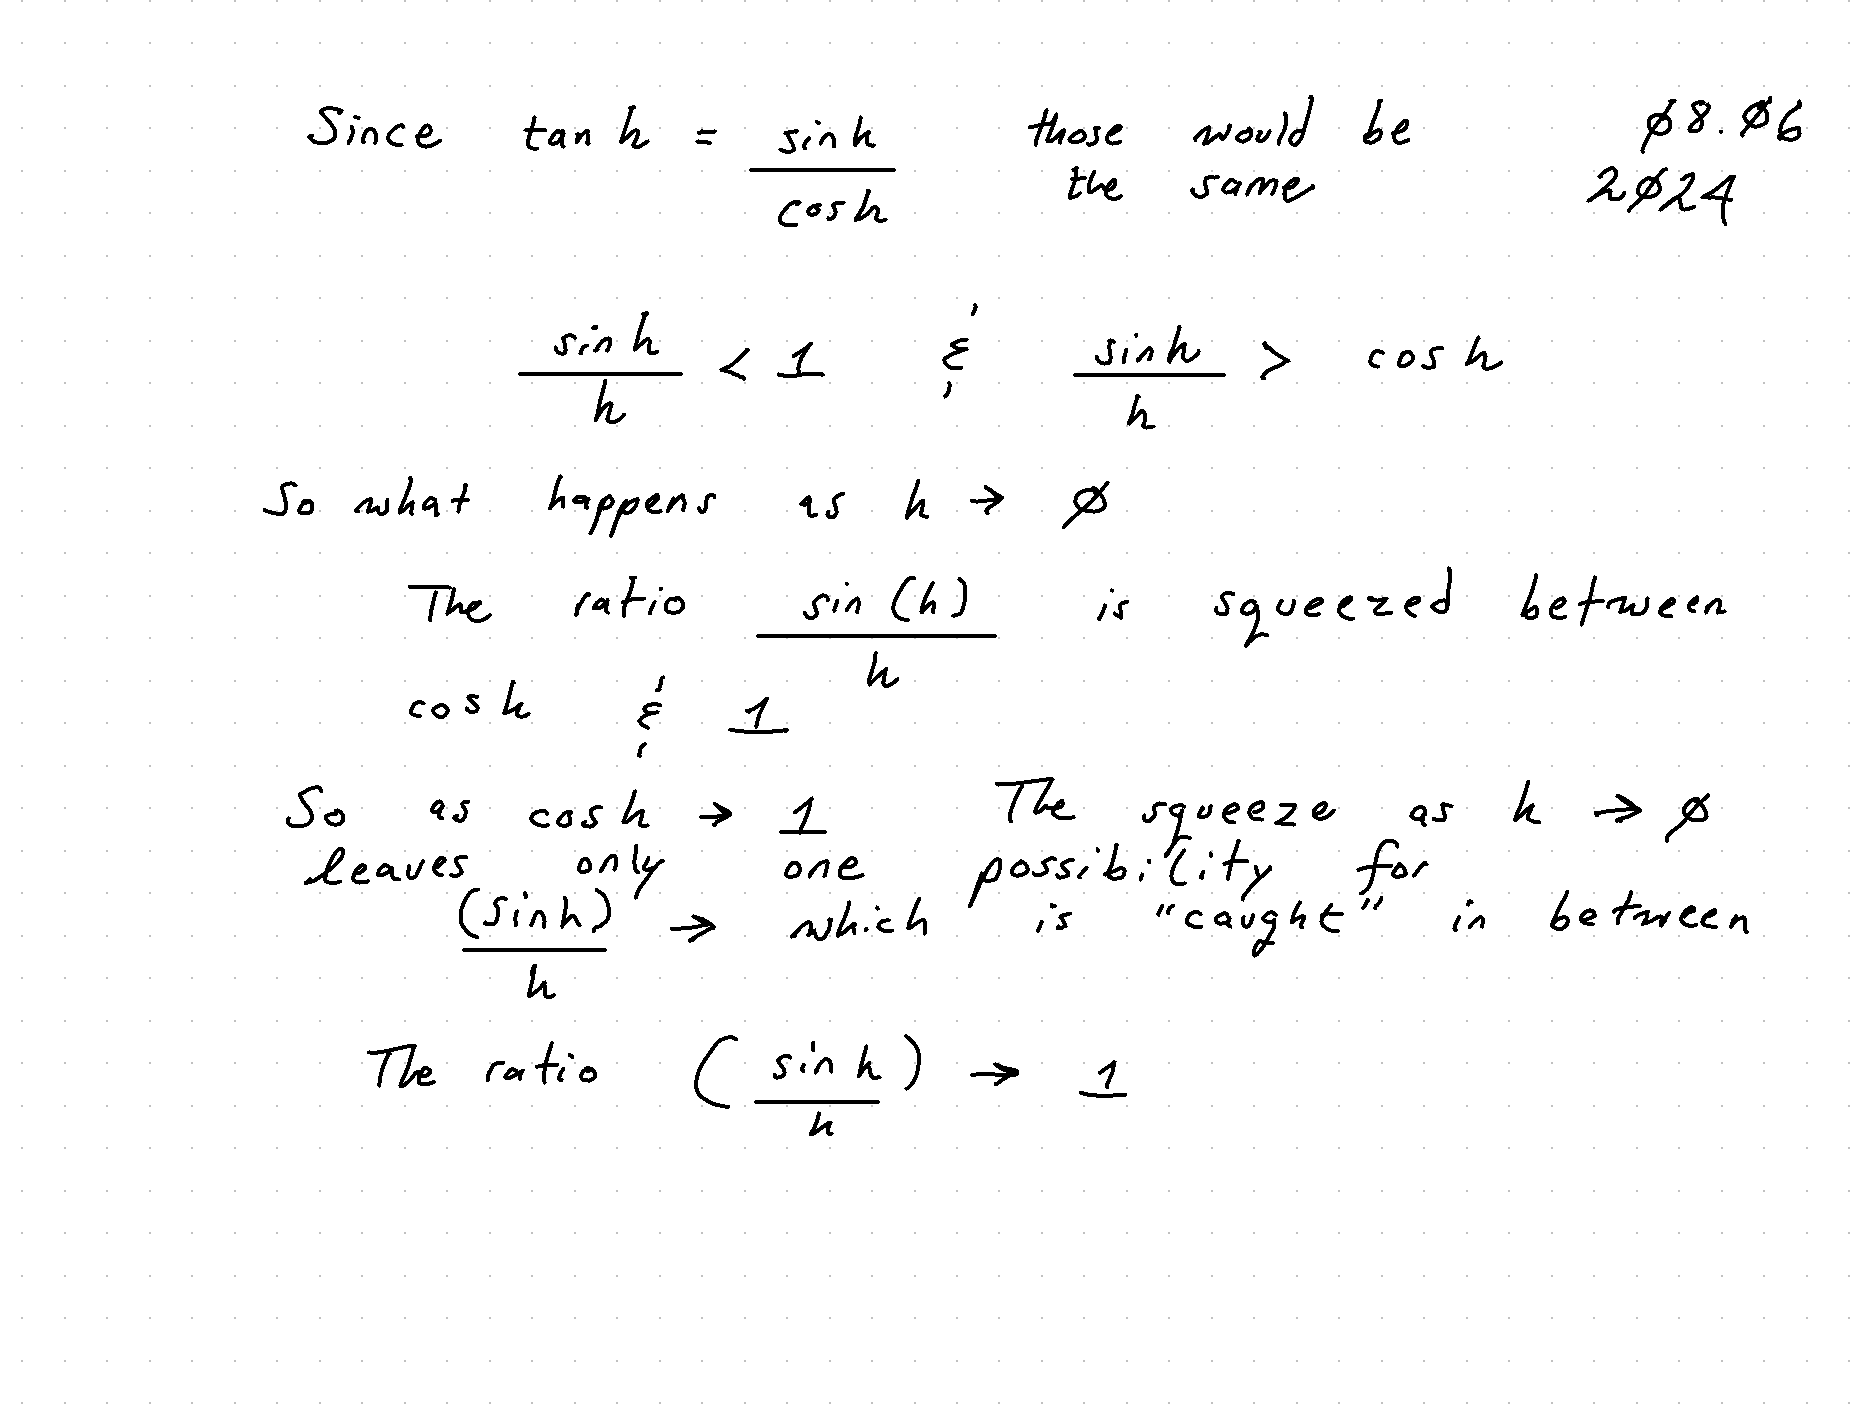 Since tan h = sin h / cos h those would be the same
08.06
2024
sin h / h < 1 & sin h / h > cos h
So what happens as h → 0
The ratio sin (h) / h is squeezed between
cos h & 1
So as cos h → 1 The squeeze as h → 0
leaves only one possibility for
(sin h) / h → which is "caught" in between
The ratio ( sin h / h ) → 1